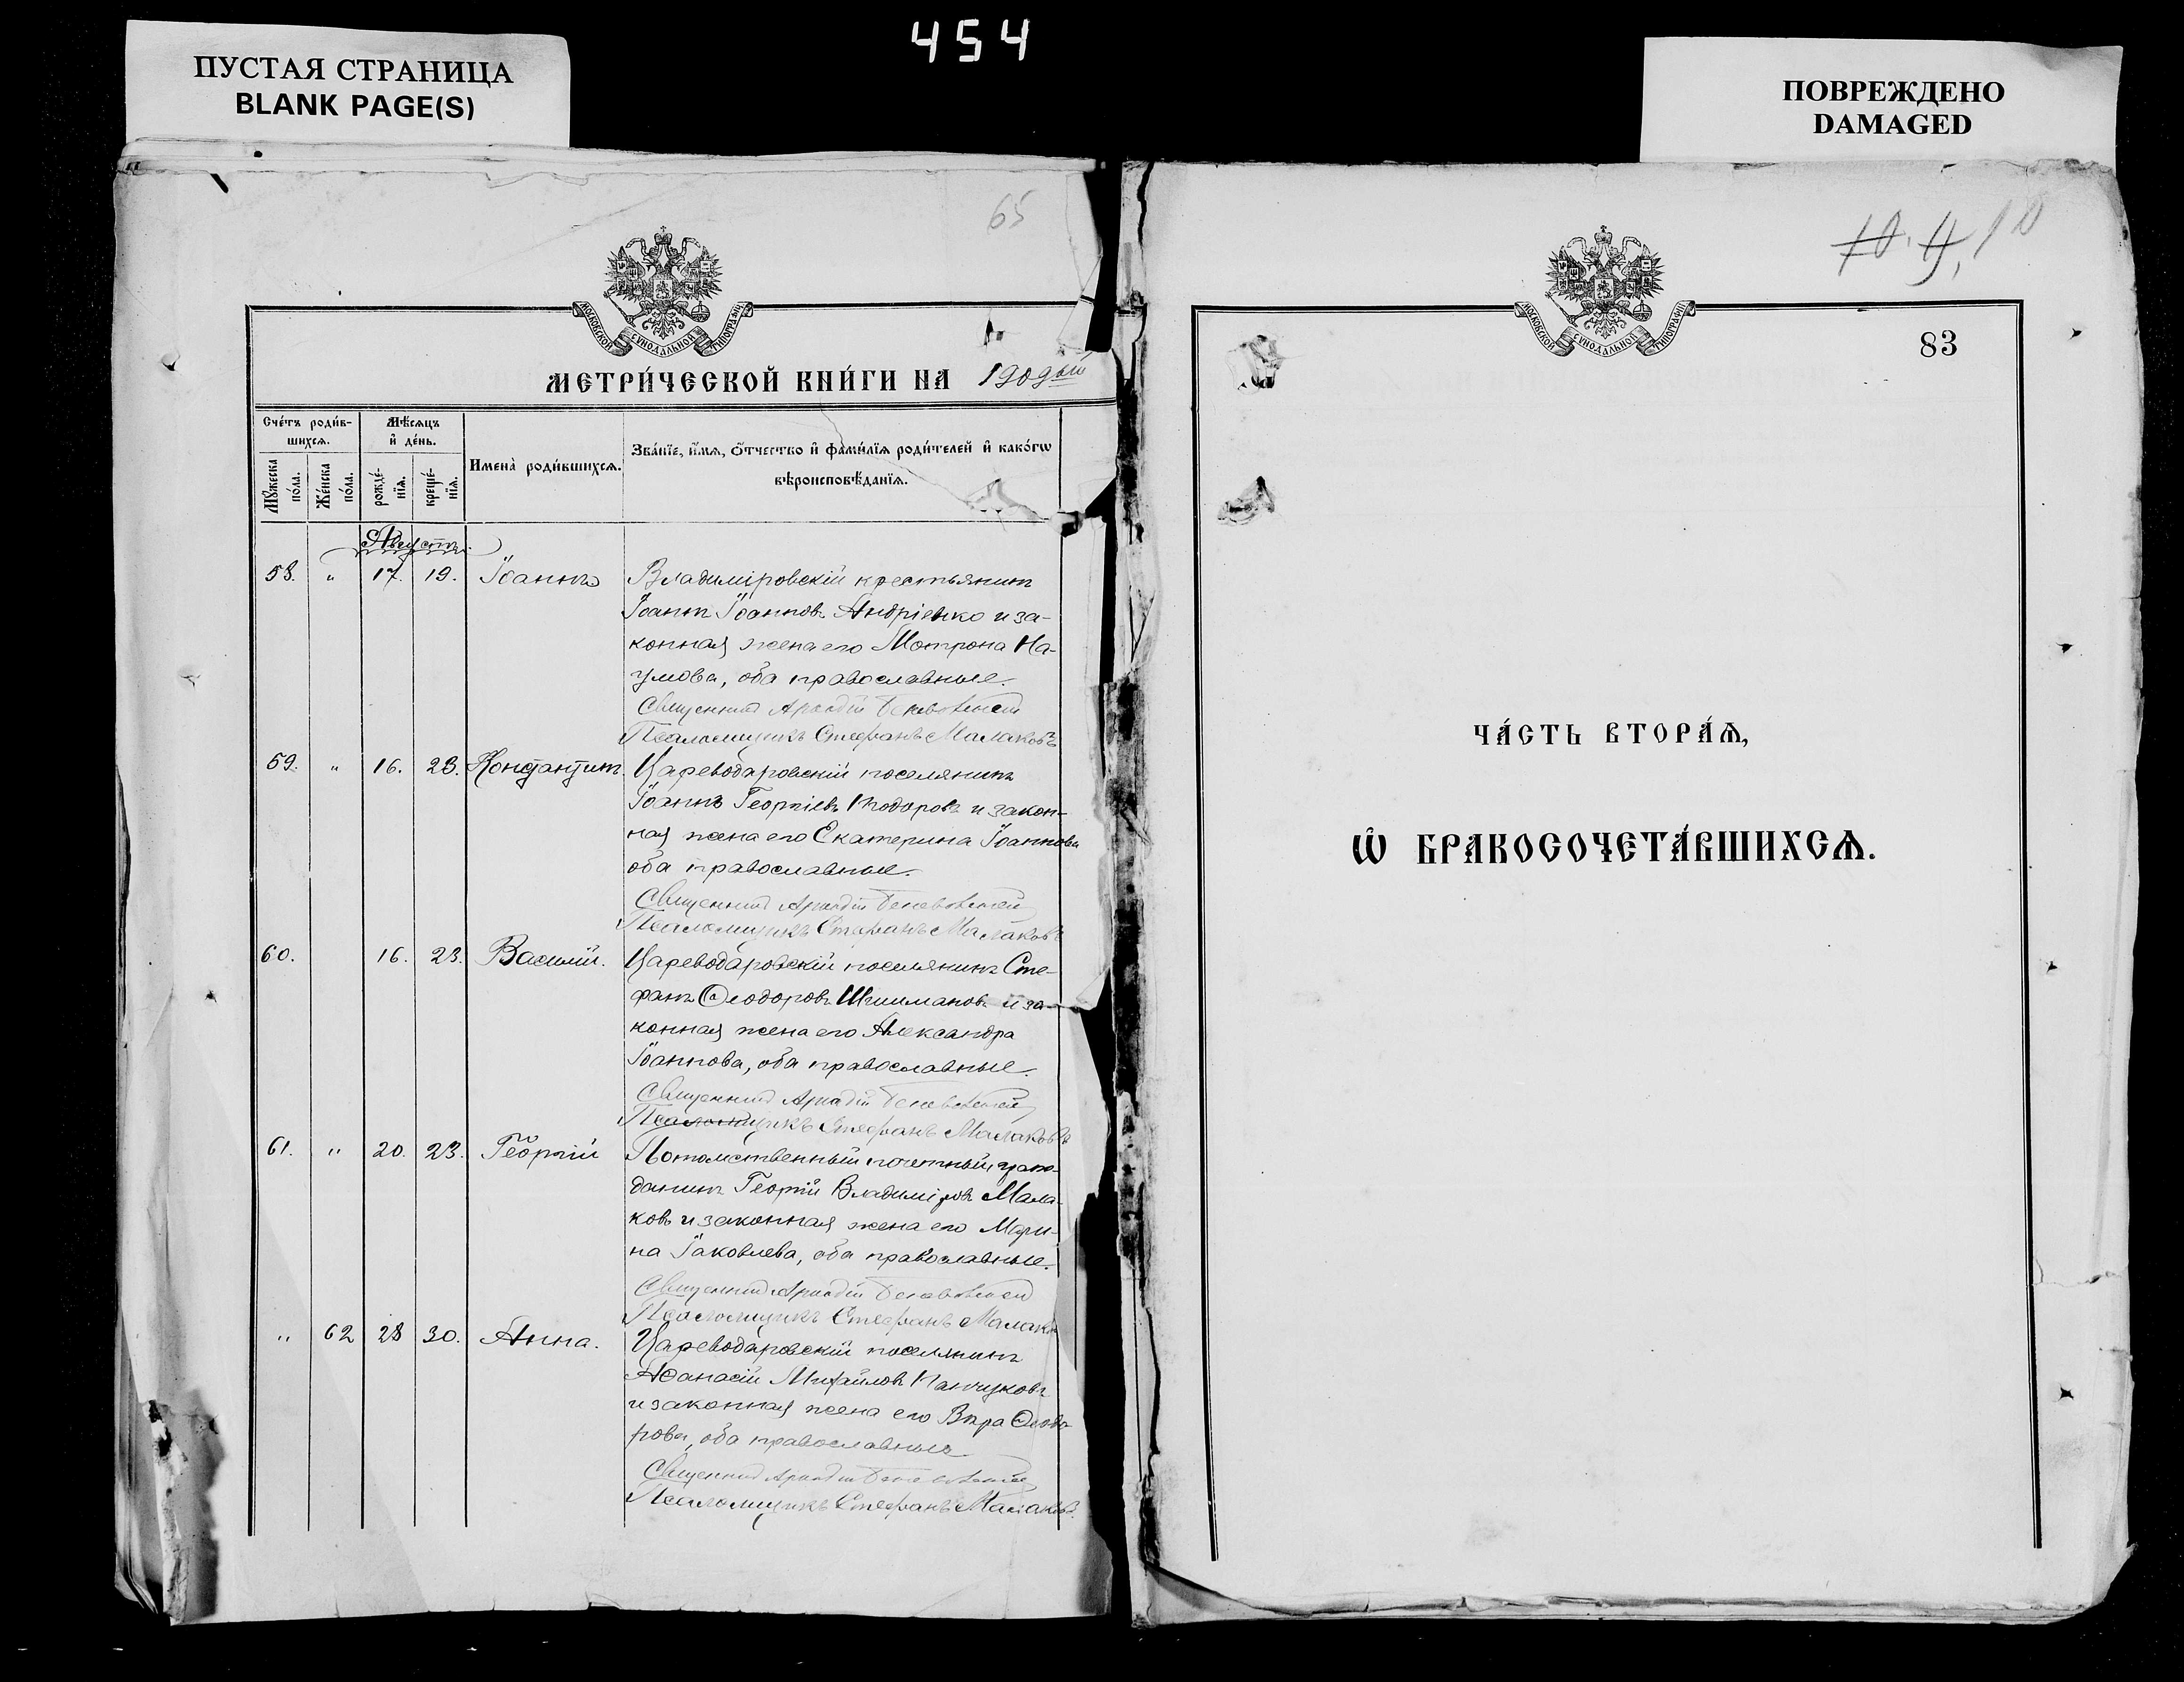 454
ПУСТАЯ СТРАНИЦА
BLANK PAGE(S)
ПОВРЕЖДЕНО
DAMAGED
65
МОСКОВСКОЙ СѴНОДАЛЬНОЙ ТИПОГРАФІИ
МЕТРИ́ЧЕСКОЙ КНИ́ГИ НА 1909ый
Сче́тъ роди́в-
шихсѧ.
Мѣ́сѧцъ
и҆ де́нь.
Имена̀ роди́вшихсѧ.
Зва́нїе, и҆́мѧ, ѻ҆́тчество и҆ фами́лїѧ роди́телей и҆ како́гѡ
вѣроисповѣ́данїѧ.
Мꙋ́жеска
по́ла.
Же́нска
по́ла.
рожде́-
нїѧ.
креще́-
нїѧ.
Августъ
58. " 17. 19. Іоаннъ Владиміровскій крестьянинъ
Іоаннъ Іоанновъ Андріенко и за-
конная жена его Мотрона На-
умова, оба православные.
Священникъ Аркадій
Псаломщикъ Стефанъ Малаковъ
59. " 16. 23. Константинъ. Цареводаровскій поселянинъ
Іоаннъ Георгіевъ Тодоровъ и закон-
ная жена его Екатерина Іоаннова
оба православные.
Священникъ Аркадій
Псаломщикъ Стефанъ Малаковъ
60. 16. 23. Василій. Цареводаровскій поселянинъ Сте-
фанъ Ѳеодоровъ Шишмановъ и за-
конная жена его Александра
Іоаннова, оба православные.
Священникъ Аркадій
Псаломщикъ Стефанъ Малаковъ
61. " 20. 23. Георгій Потомственный почетный граж-
данинъ Георгій Владиміровъ Мала-
ковъ и законная жена его Мари-
на Іаковлева, оба православные.
Священникъ Аркадій
Псаломщикъ Стефанъ Малаковъ
" 62 28 30. Анна. Цареводаровскій поселянинъ
Аѳанасій Михайловъ Панчуковъ
и законная жена его Вѣра Ѳеодо-
рова, оба православные
Священникъ Аркадій
Псаломщикъ Стефанъ Малаковъ.
10. 4, 10
МОСКОВСКОЙ СѴНОДАЛЬНОЙ ТИПОГРАФІИ
83
ЧА́СТЬ ВТОРА́Ѧ,
Ѡ҆ БРАКОСОЧЕТА́ВШИХСѦ.